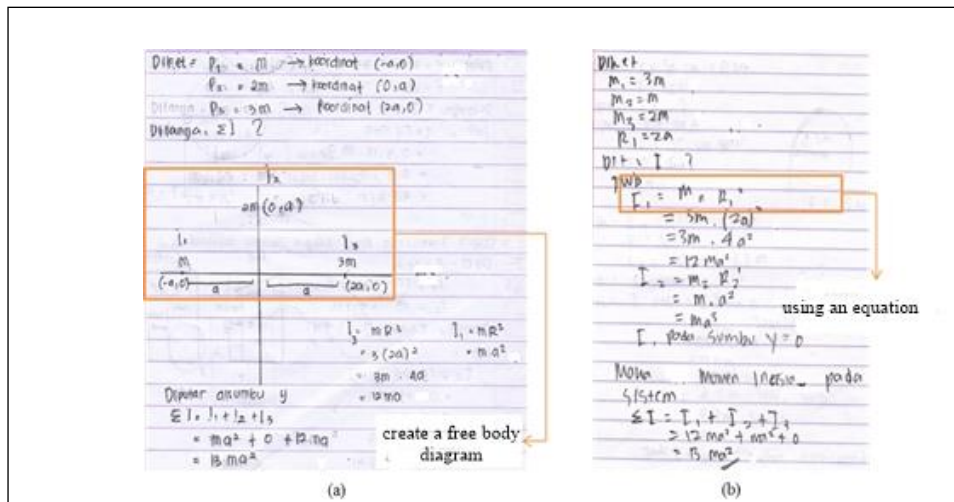 Diket = P₁ = m → koordinat (-a,0)
P₂ = 2m → koordinat (0,a)
P₃ = 3m → koordinat (2a,0)
Ditanya. ΣI ?
I₂
2m (0,a)
I₁ I₃
m 3m
(-a,0) a a (2a,0)
I₃ = mR² I₁ = mR²
= 3(2a)² = ma²
= 3m . 4a
= 12ma
Diputar disumbu y
ΣI = I₁ + I₂ + I₃
= ma² + 0 + 12ma²
= 13 ma²
create a free body
diagram
(a)
Diket
m₁ = 3m
m₂ = m
m₃ = 2m
R₁ = 2a
Dit = I ?
Jwb
I₁ = m₁ R₁²
= 3m . (2a)²
= 3m . 4a²
= 12 ma²
I₂ = m₂ R₂²
= m . a²
= ma²
pada sumbu y = 0
using an equation
Maka Momen Inersia pada
sistem
ΣI = I₁ + I₂ + I₃
= 12 ma² + ma² + 0
= 13 ma²
(b)